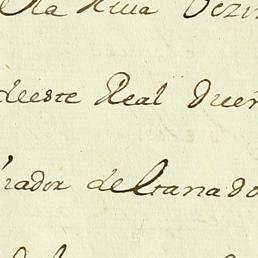 la Riva Vezi
deeste Real Duer
rador de Granado